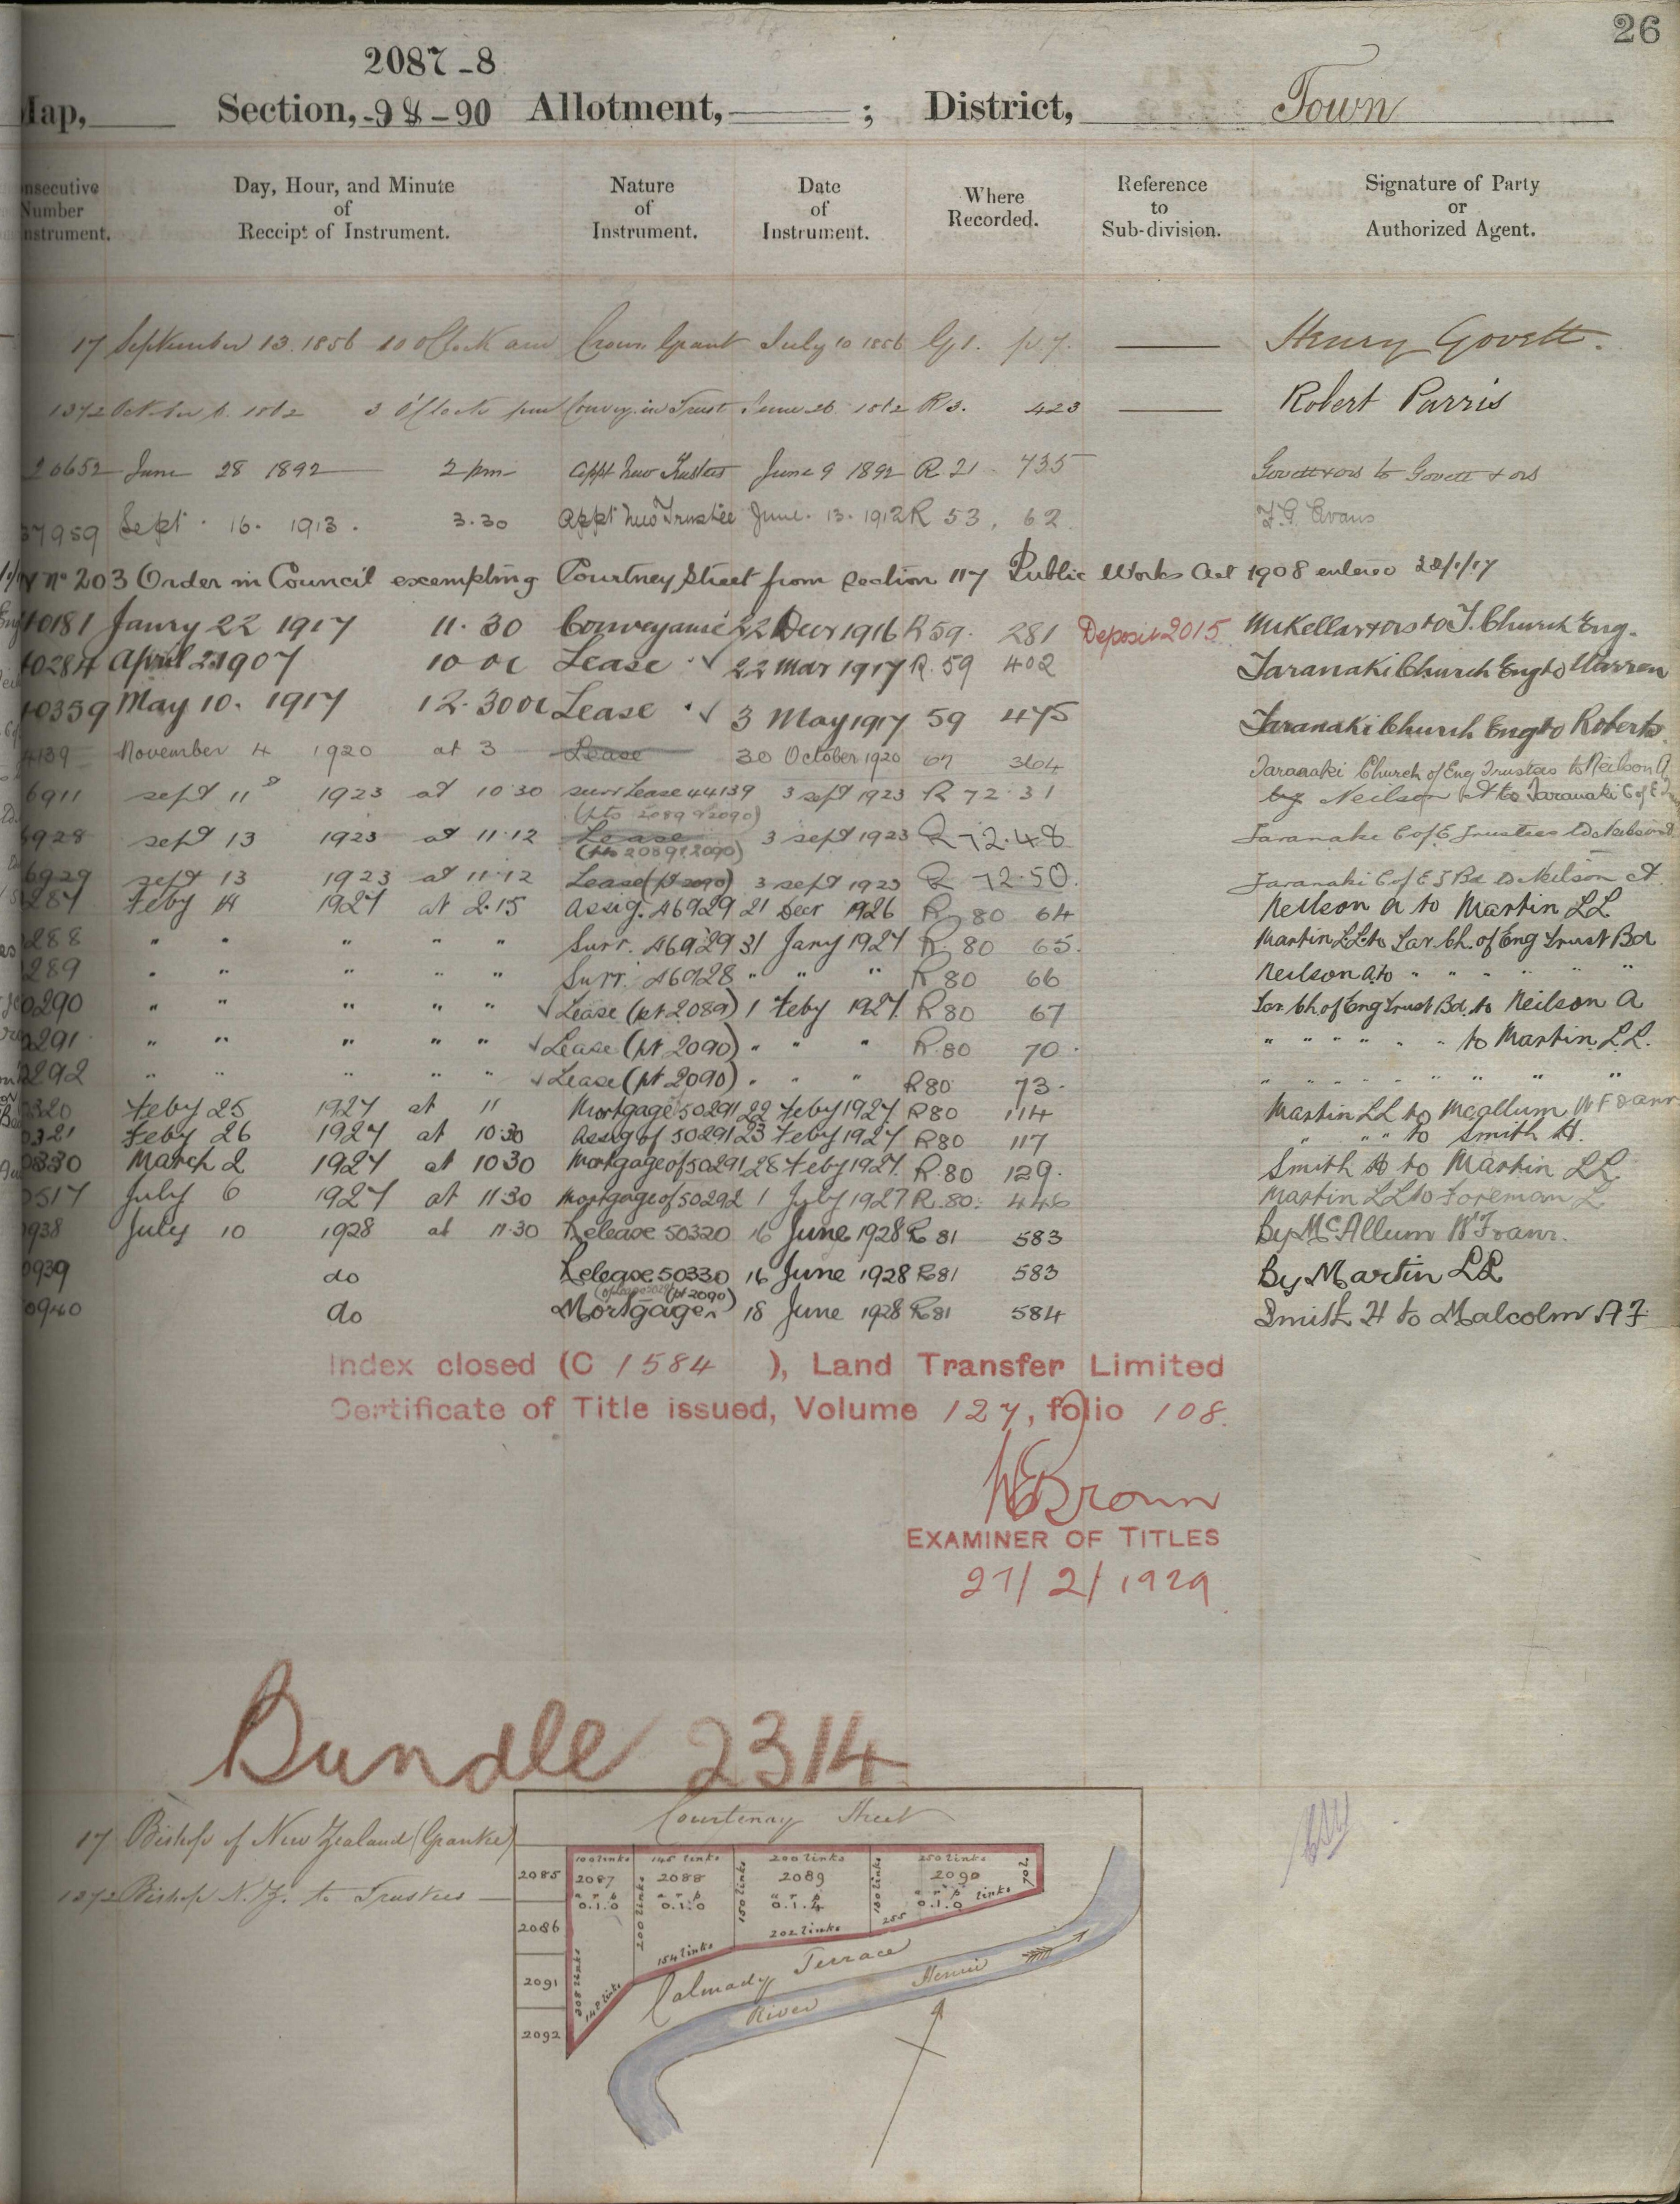 26
2087-8
Map, Section, -98-90 Allotment, ; District, Town
nsecutive Number nstrument.
Day, Hour, and Minute of Receipt of Instrument.
Nature of Instrument.
Date of Instrument.
Where Recorded.
Reference to Sub-division.
Signature of Party or Authorized Agent.
17 September 13. 1856 10 o'Clock am Crown Grant July 10 1856 G1. p.7. Henry Govett.
1372 October 6. 1862 3 o'Clock pm Convey. in Trust June 26 1862 R3. 423 Robert Parris
20652 June 28 1892 2 pm Appt New Trustees June 9 1892 R. 21. 735 Govett & ors to Govett & ors
37959 Sept. 16. 1913. 3.30 Appt New Trustee June. 13. 1912 R 53, 62. F.G. Evans
No 203 Order in Council exempting Courtney Street from Section 117 Public Works Act 1908 entered 22/1/17
40181 Janry 22 1917 11.30 Conveyance 22 Decr 1916 R 59. 281 Deposit 2015 McKellar & ors to T. Church Eng.
40284 April 2 1907 10-0c Lease 22 Mar 1917 R. 59 402 Taranaki Church Eng to Warren
40359 May 10. 1917 12.30 0c Lease 3 May 1917 59 475 Taranaki Church Eng to Roberts
4139 November 4 1920 at 3 Lease 30 October 1920 67 364 Taranaki Church of Eng Trustees to Neilson A
6911 sept 11 1923 at 10 30 Surr Lease 44139 3 sept 1923 R 72. 31 by Neilson A to Taranaki C of E
(pts 2089 & 2090)
6928 sept 13 1923 at 11.12 Lease 3 sept 1923 R 72.48 Taranaki C of E Trustees to Neilson A
(pts 2089 & 2090)
6929 sept 13 1923 at 11.12 Lease (pt 2090) 3 sept 1923 R 72.50. Taranaki C of E T Bd to Neilson A
287 Feby 14 1927 at 2.15 Assig. 46929 21 Decr 1926 R 80 64 Neilson A to Martin LL
288 " " " " " Surr. 46929 31 Jany 1927 R. 80 65. Martin LL to Tar. Ch. of Eng Trust Bd
289 " " " " " Surr. 46928 " " " R 80 66 Neilson A to " " " " " "
0290 " " " " " Lease (pt 2089) 1 Feby 1927. R 80 67 Tar. Ch. of Eng Trust Bd. to Neilson A
0291 " " " " " Lease (pt 2090) " " " R.80 70. " " " " " " to Martin L.L.
0292 " " " " " Lease (pt 2090) " " " R80 73. " " " " " " " " "
0320 Feby 25 1927 at 11 Mortgage 50291 22 Feby 1927. R80 114 Martin LL to McAllum W Franr
0321 Feby 26 1927 at 10.30 Assig of 50291 23 Feby 1927 R80 117 " " " to Smith H.
0330 March 2 1927 at 10 30 Mortgage of 50291 28 Feby 1927. R.80 129. Smith H to Martin LL.
0517 July 6 1927 at 11 30 Mortgage of 50292 1 July 1927 R.80. 446 Martin LL to Foreman L
0938 July 10 1928 at 11.30 Release 50320 16 June 1928 R 81 583 By McAllum W Franr.
0939 do Release 50330 16 June 1928 R81 583 By Martin LL
(pt 2090)
0940 do Mortgage 18 June 1928 R81 584 Smith H to Malcolm A F
Index closed (C 1584 ), Land Transfer Limited
Certificate of Title issued, Volume 127, folio 108.
Brown
EXAMINER OF TITLES
27/2/1929
Bundle 2314
17 Bishop of New Zealand (Grantee)
1372 Bishop N.Z. to Trustees
Courtenay Street
100 links 145 links 200 links 250 links
2085 2087 2088 2089 2090 70 L
a r p a r p a r p a r p
0.1.0 0.1.0 0.1.4 0.1.0
200 links 150 links 130 links
255 links
2086
202 links
154 links
2091
308 links 148 links
Calmady Terrace
River Henui
2092